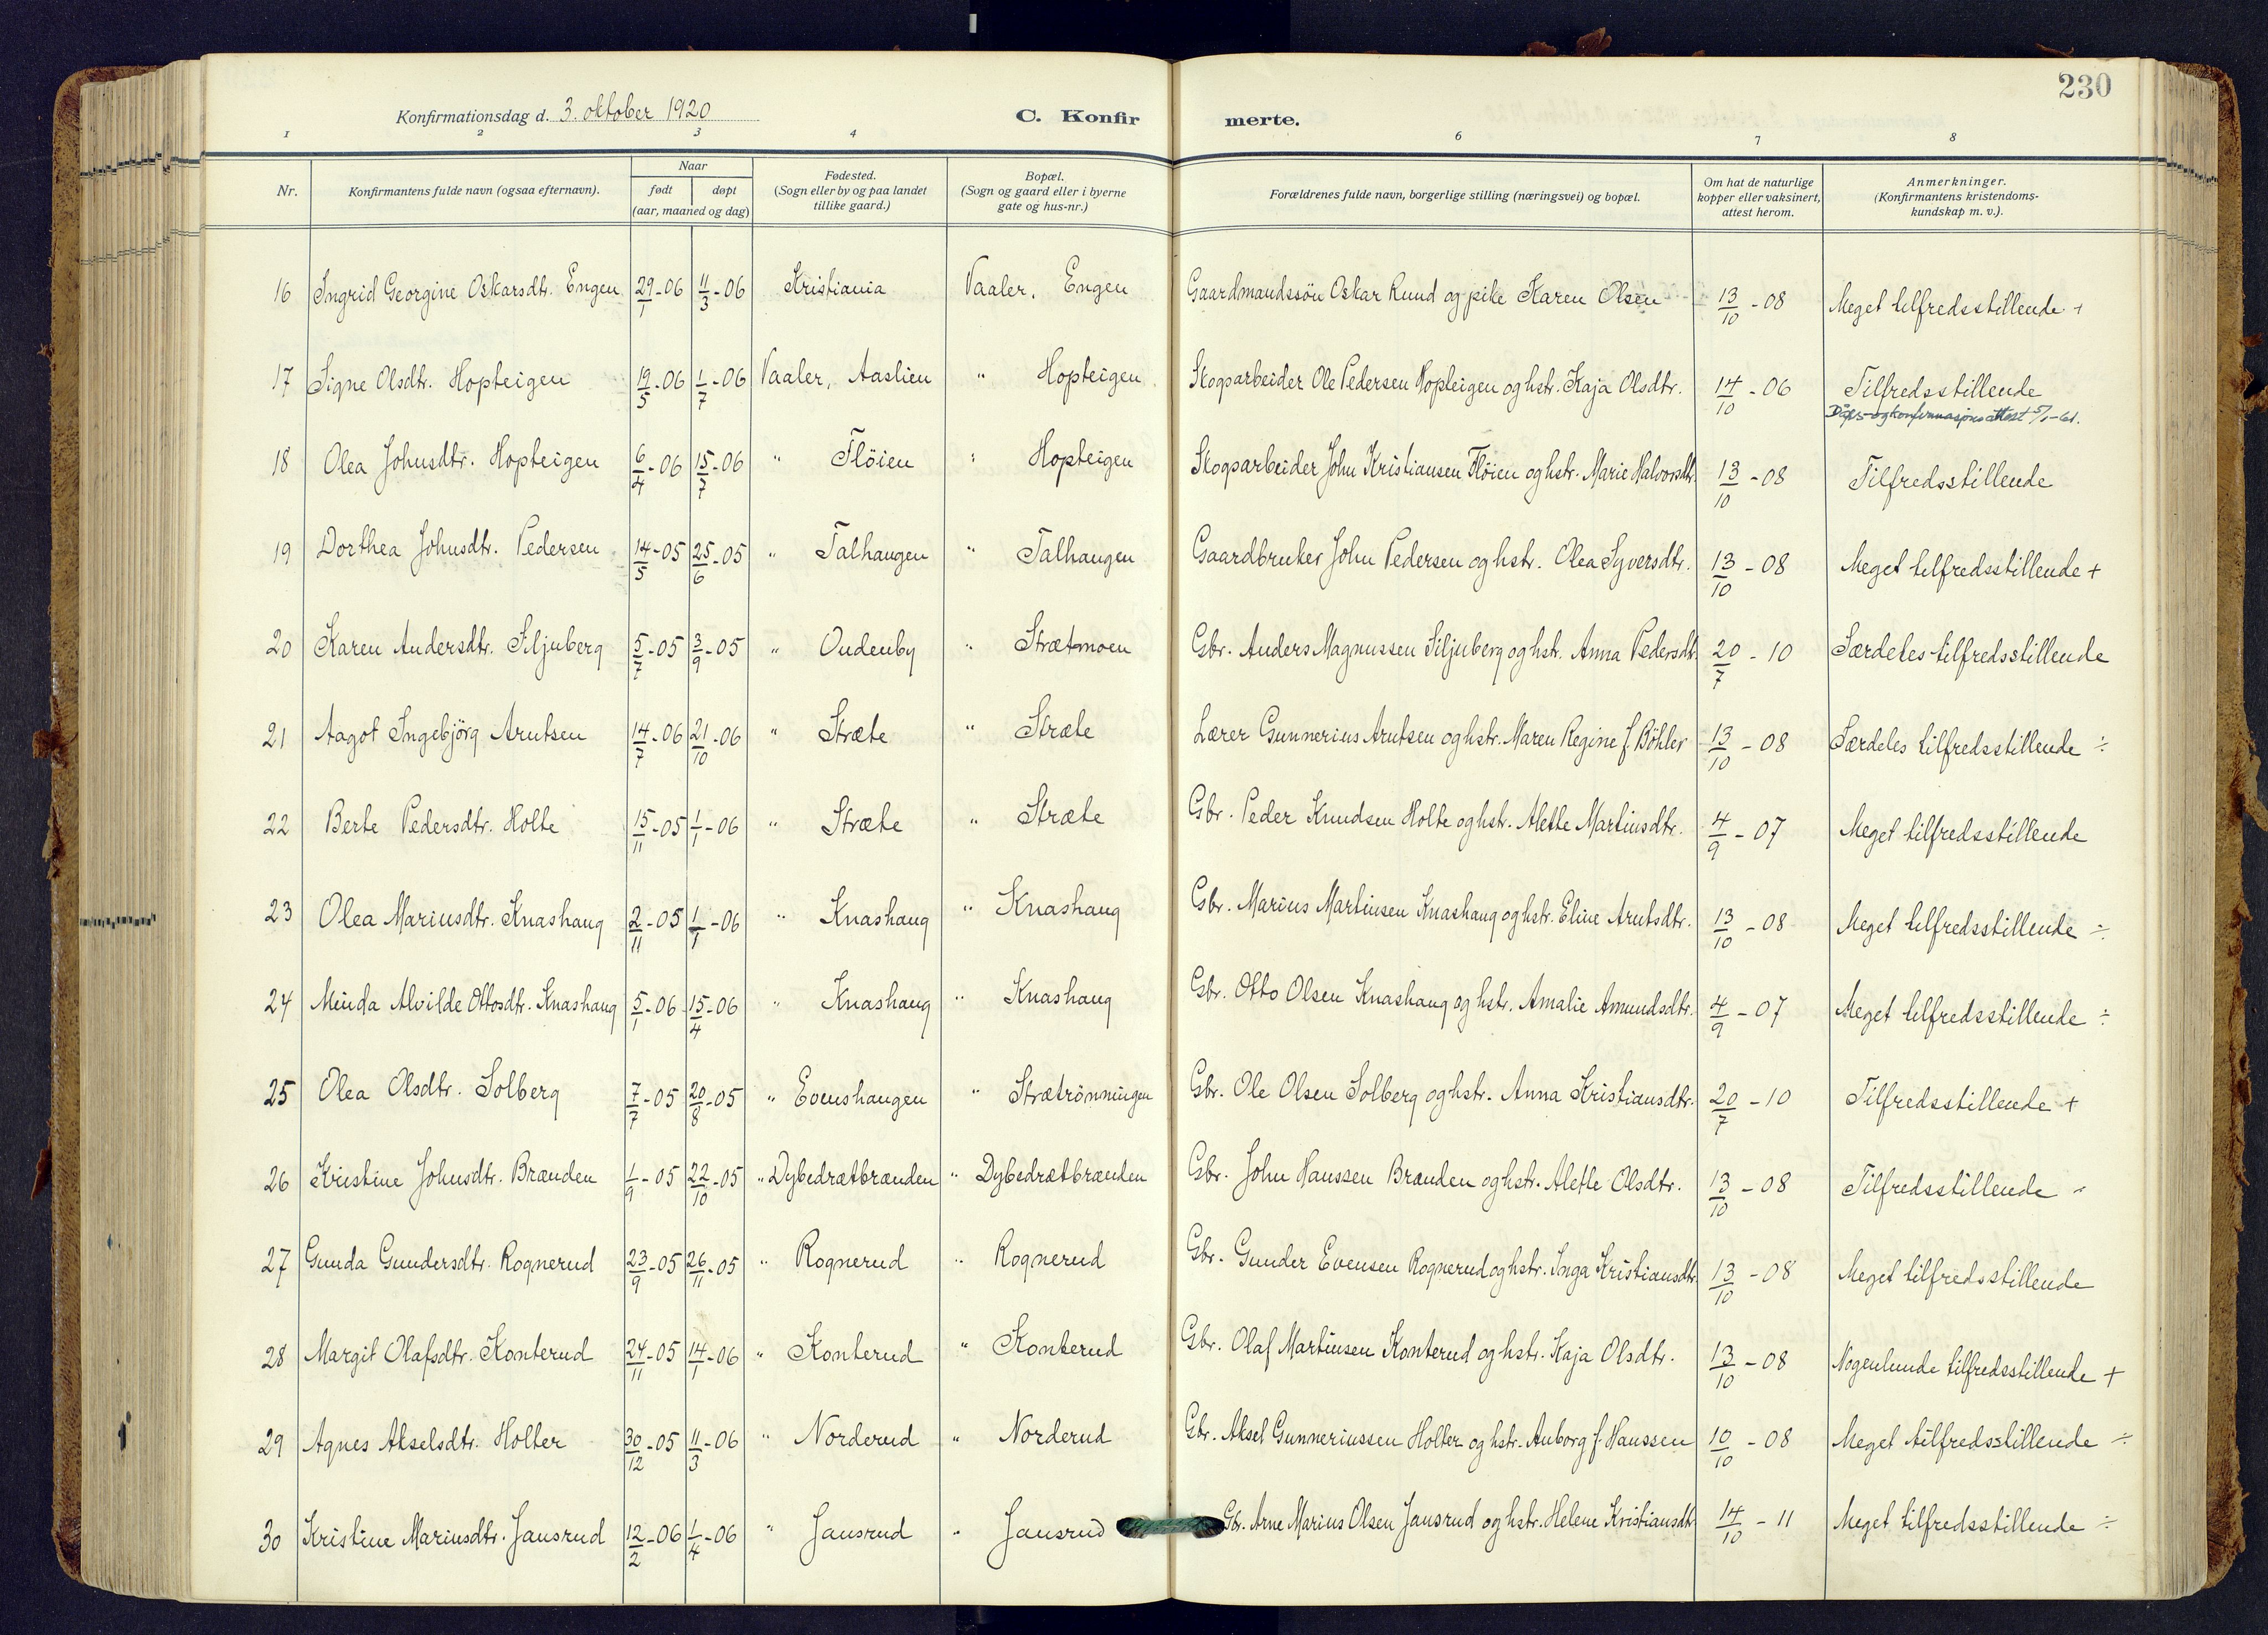 230
Konfirmationsdag d. 3. oktober 1920 C. Konfir merte.
1 2 3 4 5 6 7 8
Nr. Konfirmantens fulde navn (ogsaa efternavn). Naar født døpt (aar, maaned og dag) Fødested. (Sogn eller by og paa landet tillike gaard.) Bopæl. (Sogn og gaard eller i byerne gate og hus-nr.) Forældrenes fulde navn, borgerlige stilling (næringsvei) og bopæl. Om hat de naturlige kopper eller vaksinert, attest herom. Anmerkninger. (Konfirmantens kristendoms-kundskap m. v.).
16 Ingrid Georgine Oskarsdtr. Engen 29/1-06 11/3-06 Kristiania Vaaler, Engen Gaardmandssön Oskar Ruud og pike Karen Olsen 13/10-08 Meget tilfredsstillende +
17 Signe Olsdtr. Hopteigen 19/5-06 1/7-06 Vaaler, Aaslien " Hopteigen Skogsarbeider Ole Pedersen Hopteigen og hstr. Kaja Olsdtr. 14/10-06 Tilfredsstillende
Dåps- og konfirmasjonsattest 5/1-61.
18 Olea Johnsdtr. Hopteigen 6/4-06 15/7-06 " Flöien " Hopteigen Skogsarbeider John Kristiansen Flöien og hstr. Marie Halvorsdtr. 13/10-08 Tilfredsstillende
19 Dorthea Johnsdtr. Pedersen 14/5-05 25/6-05 " Talhaugen " Talhaugen Gaardbruker John Pedersen og hstr. Olea Syversdtr. 13/10-08 Meget tilfredsstillende +
20 Karen Andersdtr. Siljuberg 5/7-05 3/9-05 " Oudenby " Strætmoen Gbr. Anders Magnussen Siljuberg og hstr. Anna Pedersdtr. 20/7-10 Særdeles tilfredsstillende
21 Aagot Ingebjörg Arntsen 14/7-06 21/10-06 " Stræte " Stræte Lærer Gunnerius Arntsen og hstr. Maren Regine f. Böhler 13/10-08 Særdeles tilfredsstillende ÷
22 Berte Pedersdtr. Holte 15/11-05 1/1-06 " Stræte " Stræte Gbr. Peder Knudsen Holte og hstr. Alette Martinsdtr. 4/9-07 Meget tilfredsstillende
23 Olea Mariusdtr. Knashaug 2/11-05 1/1-06 " Knashaug " Knashaug Gbr. Marius Martinsen Knashaug og hstr. Eline Arntsdtr. 13/10-08 Meget tilfredsstillende ÷
24 Minda Alvilde Ottosdtr. Knashaug 5/1-06 15/4-06 " Knashaug " Knashaug Gbr. Otto Olsen Knashaug og hstr. Amalie Amundsdtr. 4/9-07 Meget tilfredsstillende ÷
25 Olea Olsdtr. Solberg 7/7-05 20/8-05 " Evenshaugen " Strætrönningen Gbr. Ole Olsen Solberg og hstr. Anna Kristiansdtr. 20/7-10 Tilfredsstillende +
26 Kristine Johnsdtr. Brænden 1/9-05 22/10-05 " Dybedrætbrænden " Dybedrætbrænden Gbr. John Hanssen Brænden og hstr. Alette Olsdtr. 13/10-08 Tilfredsstillende
27 Gunda Gundersdtr. Rognerud 23/9-05 26/11-05 " Rognerud " Rognerud Gbr. Gunder Evensen Rognerud og hstr. Inga Kristiansdtr. 13/10-08 Meget tilfredsstillende
28 Margit Olafsdtr. Konterud 24/11-05 14/1-06 " Konterud " Konterud Gbr. Olaf Martinsen Konterud og hstr. Kaja Olsdtr. 13/10-08 Nogenlunde tilfredsstillende +
29 Agnes Akselsdtr. Holter 30/12-05 11/3-06 " Norderud " Norderud Gbr. Aksel Gunneriussen Holter og hstr. Anborg f. Hanssen 10/10-08 Meget tilfredsstillende ÷
30 Kristine Mariusdtr. Jansrud 12/2-06 1/4-06 " Jansrud " Jansrud Gbr. Arne Marius Olsen Jansrud og hstr. Helene Kristiansdtr 14/10-11 Meget tilfredsstillende ÷